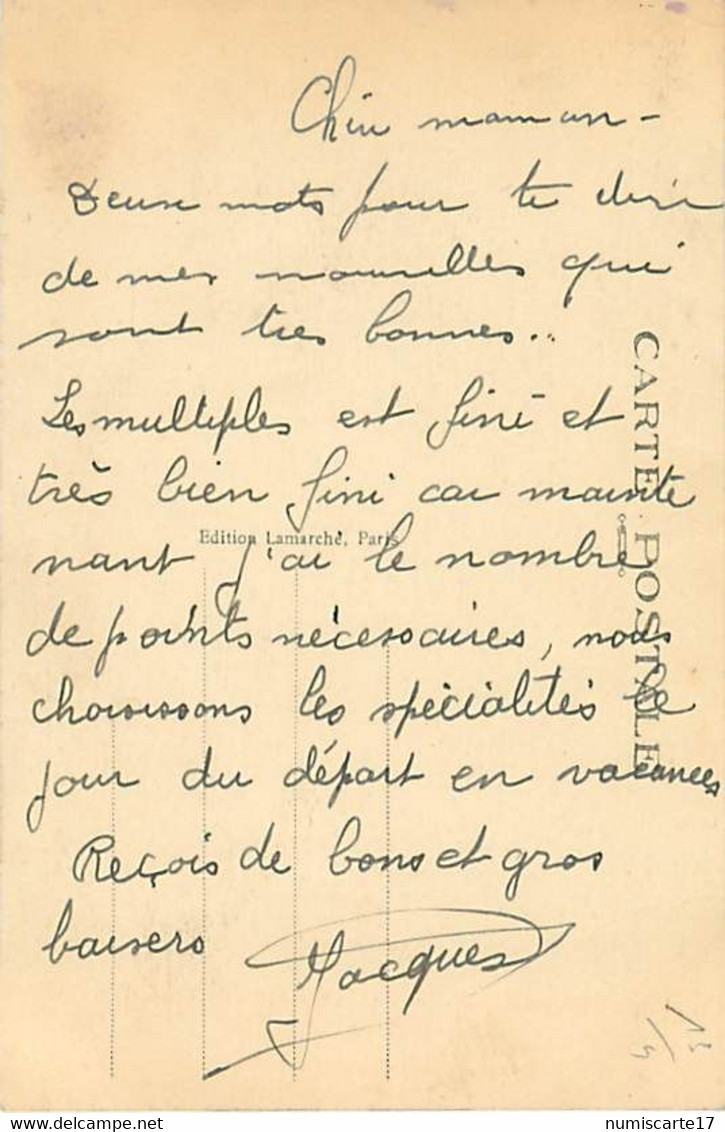 Chère maman -
Deux mots pour te dire
de mes nouvelles qui
sont tres bonnes..
Les multiples est fini et
très bien fini car mainte
nant j'ai le nombre
de points nécessaires, nous
choisissons les spécialités le
jour du départ en vacances
Reçois de bons et gros
baisers Jacques
Edition Lamarche, Paris
CARTE POSTALE
numiscarte17